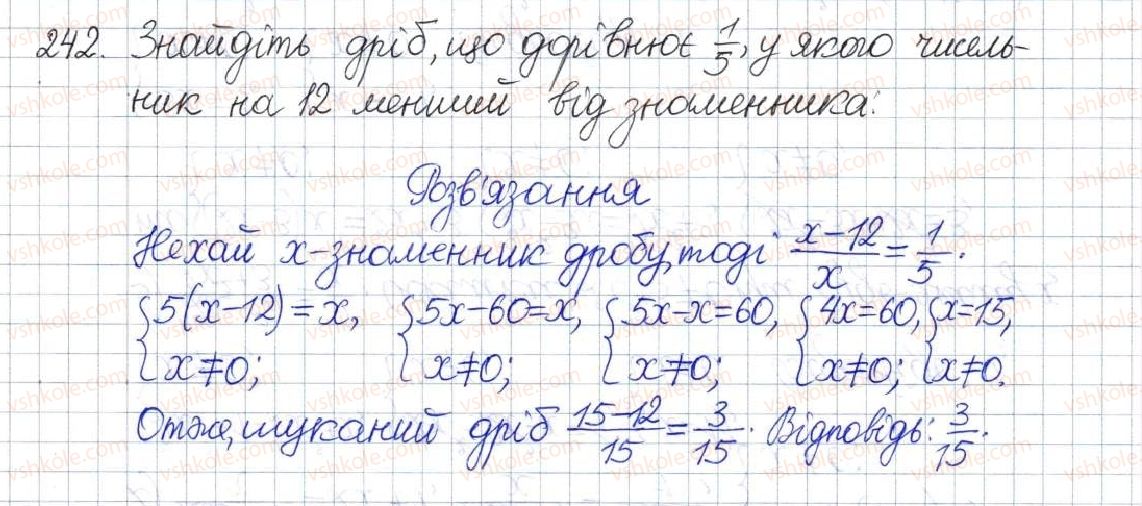 242. Знайдіть дріб, що дорівнює 1/5, у якого чисель-
ник на 12 менший від знаменника:
Розв'язання
Нехай x-знаменник дробу, тоді (x-12)/x = 1/5.
{5(x-12)=x, {5x-60=x, {5x-x=60, {4x=60, {x=15,
x≠0; x≠0; x≠0; x≠0; x≠0.
Отже, шуканий дріб (15-12)/15 = 3/15. Відповідь: 3/15.